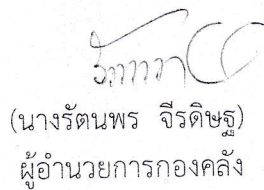 (นางรัตนพร จีรดิษฐ)
ผู้อำนวยการกองคลัง